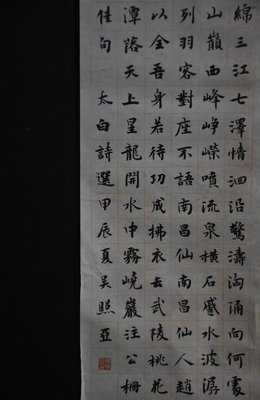 綿三江七澤情洄沿驚濤洶湧向何處
山巔西峰崢嶸噴流泉橫石蹙水波潺
列羽容對座不語南昌仙南昌仙人趙
以全吾身若待功成拂衣去武陵桃花
潭落天上星龍開水中霧嶢巖注公柵
佳句 太白詩選甲辰夏吳照亞